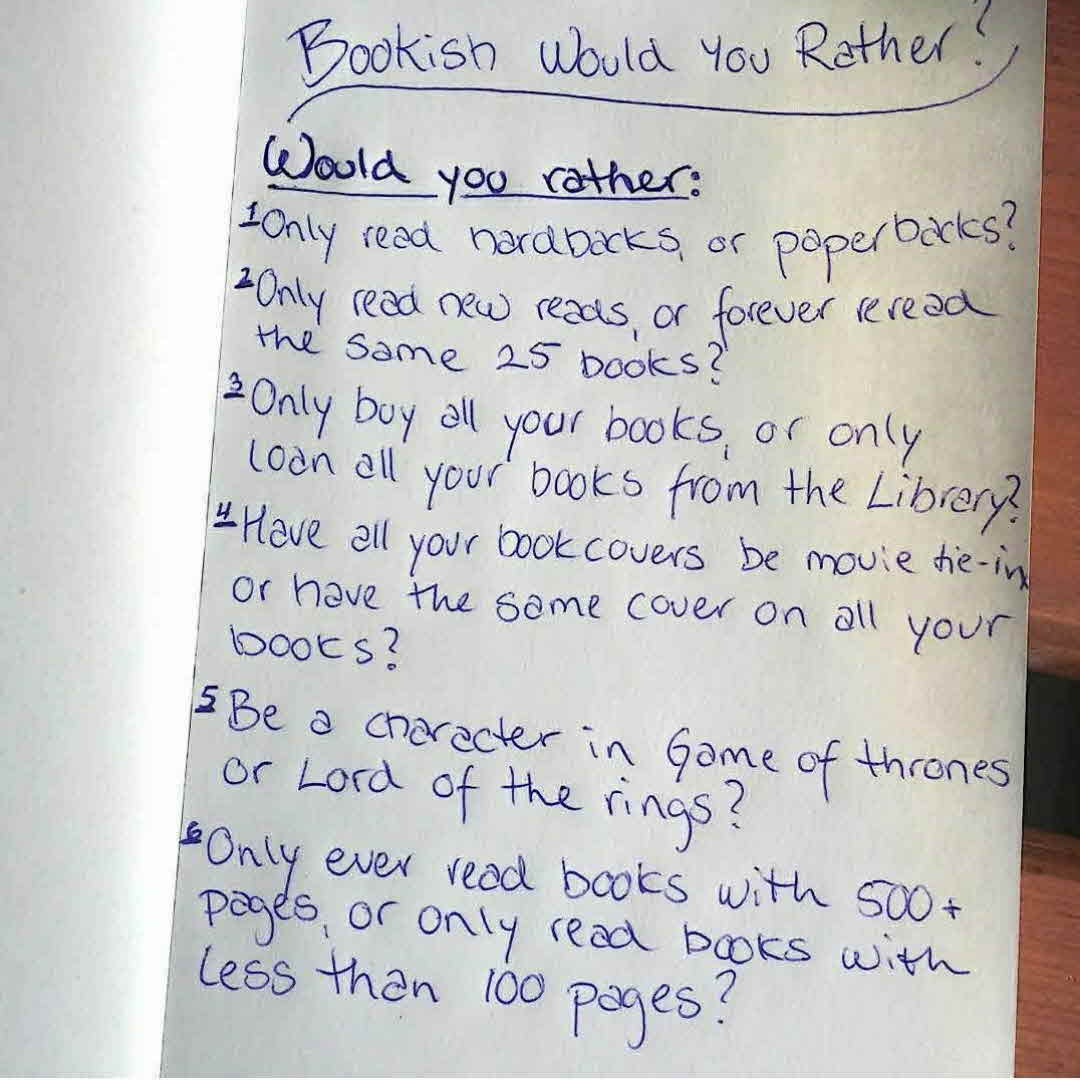 Bookish Would You Rather?
Would you rather:
1 Only read hardbacks, or paperbacks?
2 Only read new reads, or forever reread
the same 25 books?
3 Only buy all your books, or only
loan all your books from the Library?
4 Have all your bookcovers be movie tie-in,
or have the same cover on all your
books?
5 Be a character in Game of thrones
or Lord of the rings?
6 Only ever read books with 500+
pages, or only read books with
less than 100 pages?